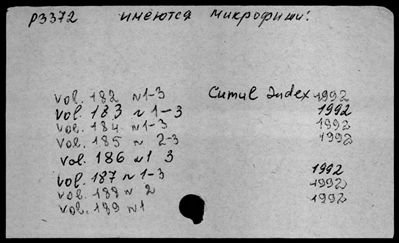 P3372 имеются микрофиши:
vol. 182 N1-3 Cumul Index 1992
vol. 183 N 1-3 1992
vol. 184 N1-3 1992
vol. 185 N 2-3 1992
vol. 186 N1 3
vol. 187 N 1-3 1992
vol. 188 N 2 1992
vol. 189 N1 1992